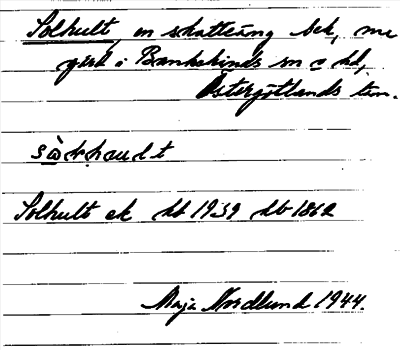 Solhult, en skatteäng bek, me
gård i Bankekinds sn o hd,
Östergötlands län.
Solhult ek hb 1939 db 1862
Maja Nordlund 1944.